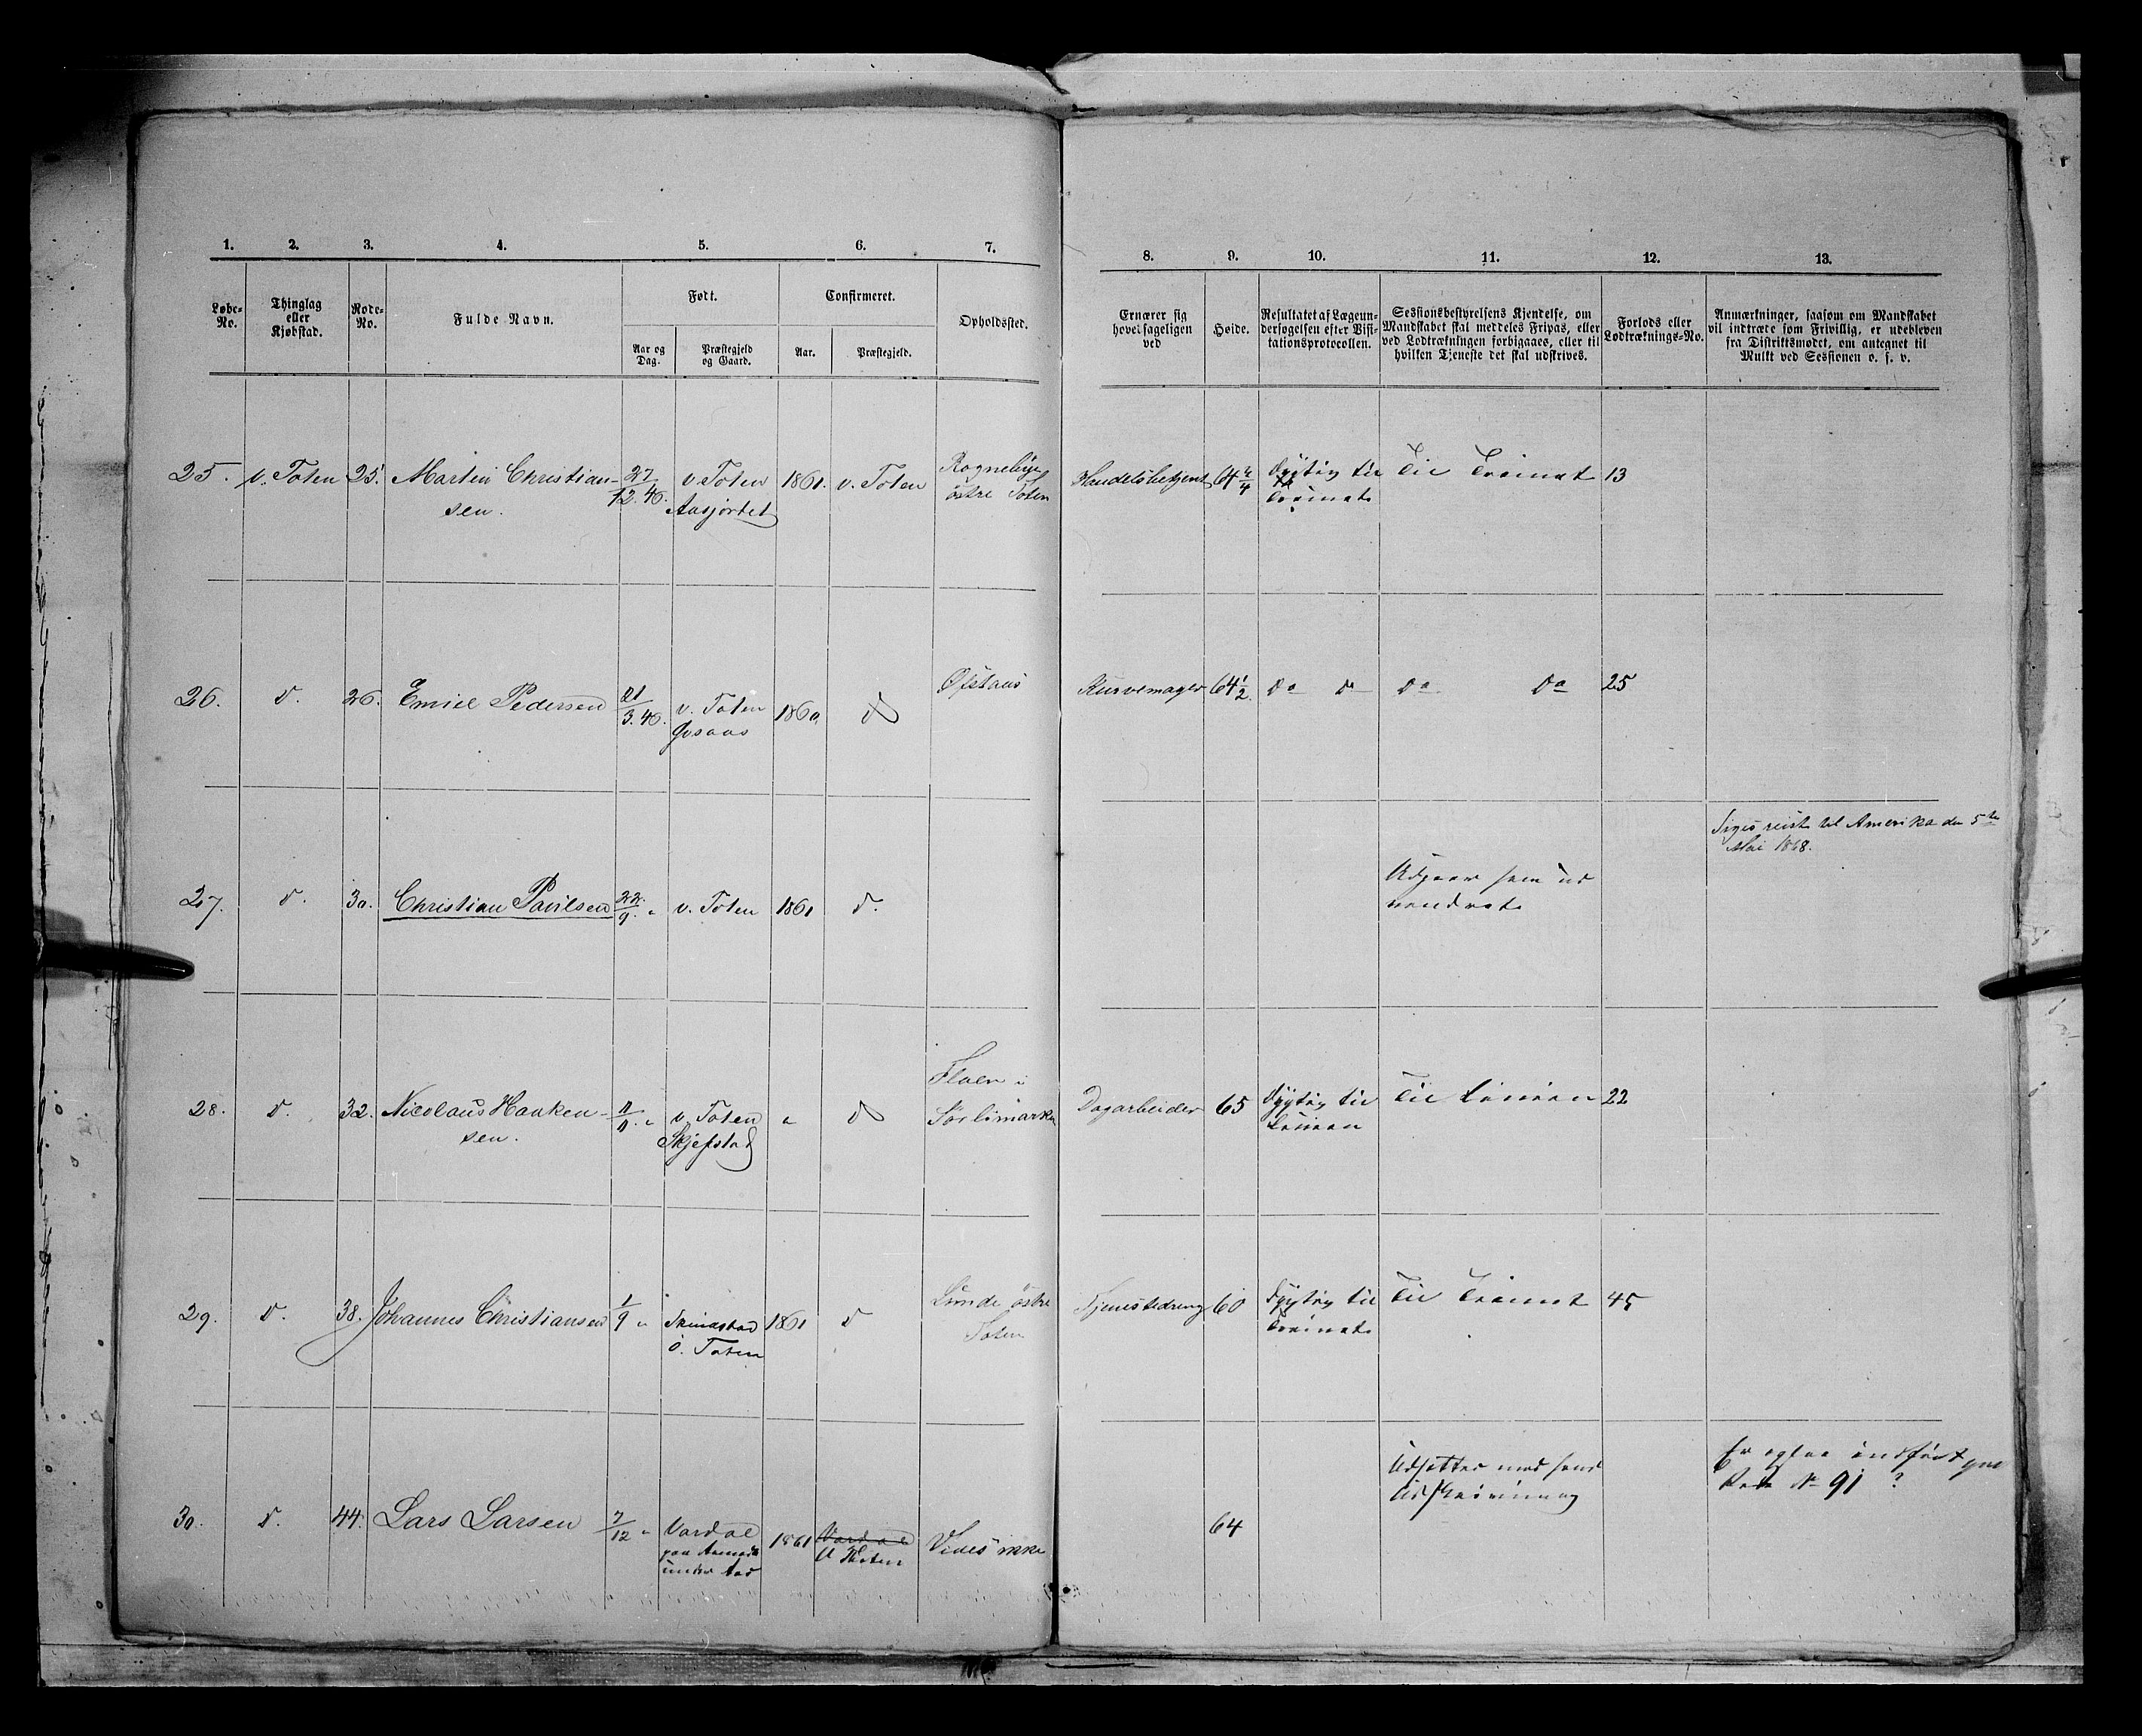 1. 2. 3. 4. 5. 6. 7.
Løbe-No. Thinglag eller Kjøbstad. Rode-No. Fulde Navn. Født. Confirmeret. Opholdssted.
Aar og Dag. Præstegjeld og Gaard. Aar. Præstegjeld.
8. 9. 10. 11. 12. 13.
Ernærer sig hovedsageligen ved Høide. Resultatet af Lægeundersøgelsen efter Visitationsprotocollen. Sessionsbestyrelsens Kjendelse, om Mandskabet skal meddeles Fripas, eller ved Lodtrækningen forbigaaes, eller til hvilken Tjeneste det skal udskrives. Forlods eller Lodtræknings-No. Anmærkninger, saasom om Mandskabet vil indtræde som Frivillig, er udebleven fra Distriktsmødet, om antegnet til Mulkt ved Sessionen o. s. v.
25. v. Toten 25. Martin Christian- 27/12. 46. v. Toten 1861. v. Toten Rognebye
sen. østre Toten
Handelsbetjent 64 Dygtig til Til Trainet 13
Trainet
26. d. 26. Emiel Pedersen 21/3. 46. v. Toten 1860, d Øfstaas
Kurvemager 64 1/2 do d do do 25
27. d. 30. Christian Paulsen 22/9. " v. Toten 1861 d.
Siges reist til Amerika den 5te
Mai 1868.
Udgaar som ud
vandret
28. d. 32. Nicolaus Hauken- v. Toten " d
sen. Skjefstad
Sørlimarken
Dagarbeider 65 Dygtig til Til Linien 22
Linien
29. d. 38. Johannes Christiansen 1/9 " 1861 d Lunde østre
ö. Toten Toten
Tjenestedreng 60 Dygtig til Til Trainet 45
Trainet
30. d. 44. Lars Larsen 7/12 " Vardal 1861 Vardal Vides ikke
under Aas
64 Udsættes med hans
Udskrivning
Er ogsaa indført paa
Rode No 91 ?